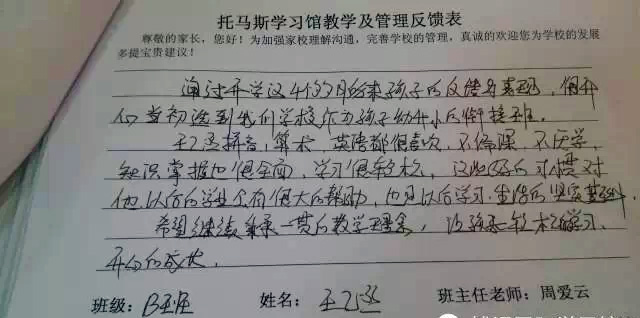 托马斯学习馆教学及管理反馈表
尊敬的家长，您好！为加强家校理解沟通，完善学校的管理，真诚的欢迎您为学校的发展
多提宝贵建议！
通过开学这4个多月的来孩子的反馈与表现，很开
心当初选到我们学校作为孩子幼升小的衔接班。
拼音，算术，英语都很喜欢，不偏课，不厌学，
知识掌握也很全面，学习很轻松，这些好的习惯对
他以后的学业会有很大的帮助，也是以后学习、生活的坚实基础。
希望继续秉承一贯的教学理念，让孩子轻松学习，
开心的成长。
班级：B班 姓名：王 班主任老师：周爱云